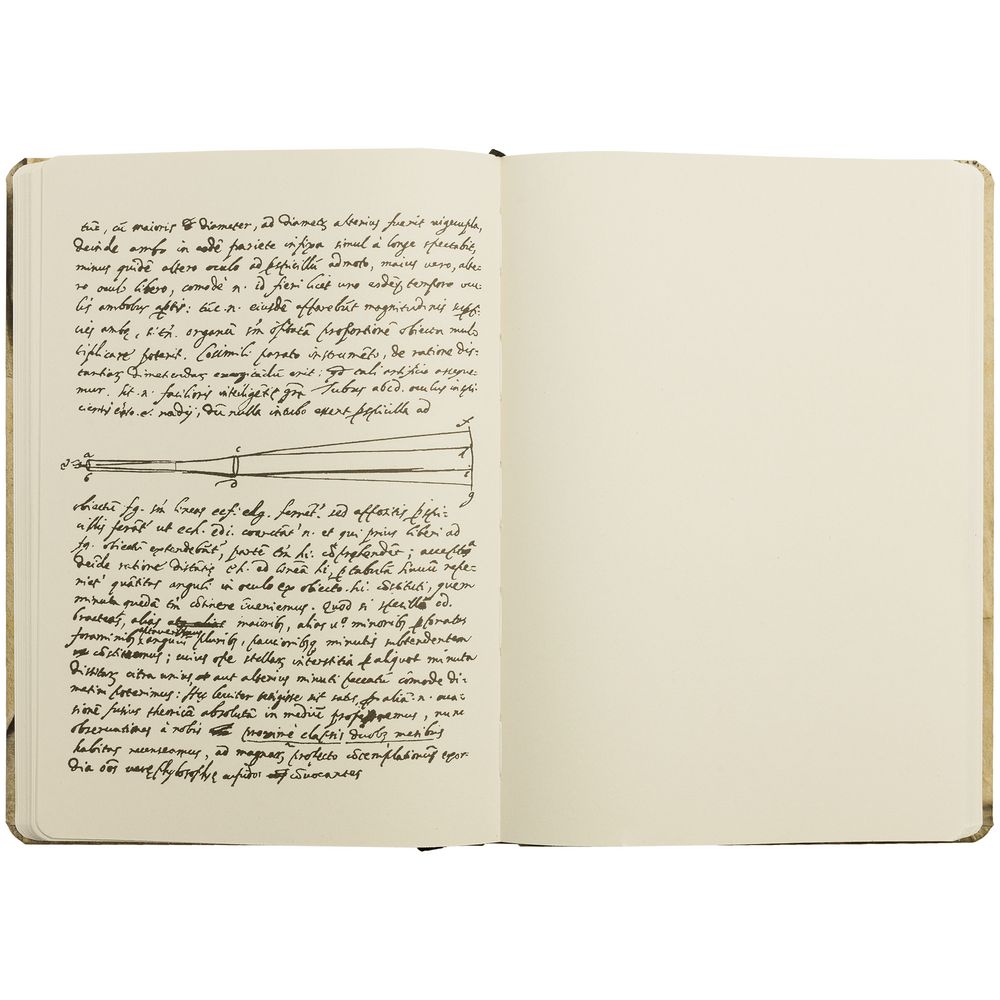 tũe, cũ maioris diameter, ad diametȝ alterius fuerit vigecupla,
deinde ambo in eodē pariete infixa simul à longe spectabit,
minus quidē altero oculo ad pspicillũ admoto, maius vero, alte-
ro oculo libero, comodè n. id fieri licet uno eodeȝ tempore ocu-
lis ambobus aptis: tũc. n. eiusdē apparebũt magnitudinis supfi-
cies ambę, si organũ proportionē obiecta mul
tiplicare poterit. Cosimili parato instrumēto, de ratione dis-
tantiaȝ dimetiendaȝ erit: qđ tali artificio asseque-
mur. Sit. n. facilioris intelligētię gr̃a Tubus abcd. oculus inspi-
cientis esto. e. radij, dũ nulla in tubo essent pspicilla ad
a
b
c
d
f
h
i
g
obiectũ fg. lineas ecf. edg. ferrēt.' sed appositis pspi-
cillis ferāt' ut ech. edi. coarctāt' n. et qui prius liberi ad
fg. obiectũ extendebāt', partē hi. cõprehendēt;
deīde ratione distātię eh. ad lineā hi, p tabulā sinuũ repe-
riet' quātitas anguli in oculo ex obiecto. hi. cõstituti, quem
minuta quedā cõtinere īveniemus. Quod si specillo cd.
bracteas, alias maioribȝ, alias v.º minoribȝ pforatas
foraminibȝ angulũ pluribȝ, paucioribȝ minutis subtendentem
cõstituemus; cuius ope stellaȝ interstitia p aliquot minuta
dissitaȝ citra unius, aut alterius minuti peccatũ cõmode di-
metiri poterimus: Hęc leviter tetigisse sit satis, p aliā. n. occa-
sionē huius theoricā absolutā in mediũ proferemus, nunc
observationes à nobis proximè elapsis duobȝ mensibus
habitas recenseamus, ad magnaȝ profecto cõtēplationũ exor-
dia oēs verę phylosophię cupidos cõvocantes